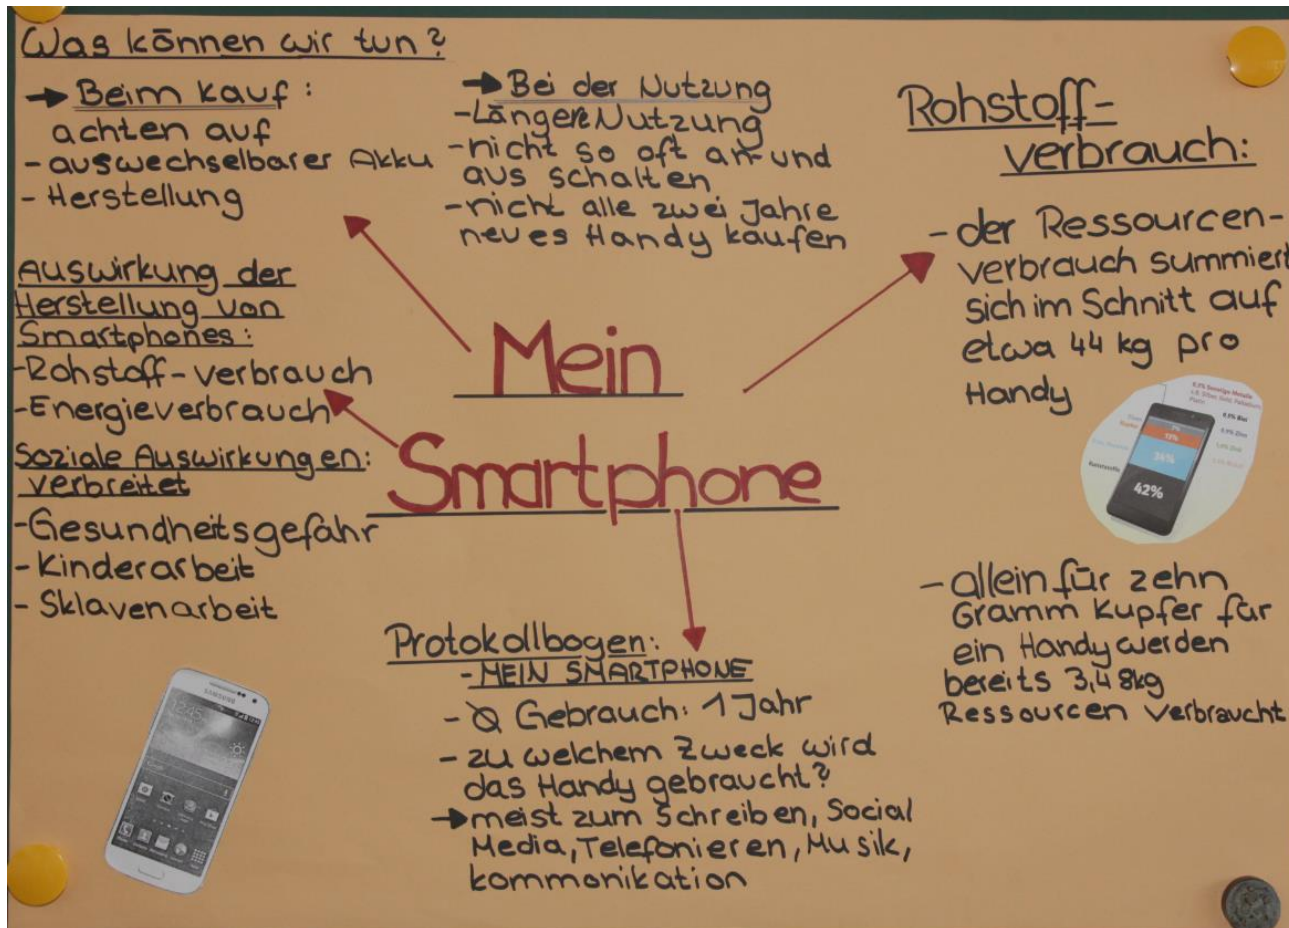 Was können wir tun?
→ Beim kauf:
achten auf
- auswechselbarer Akku
- Herstellung
→ Bei der Nutzung
- Längere Nutzung
- nicht so oft an- und
aus schalten
- nicht alle zwei Jahre
neues Handy kaufen
Rohstoff-
verbrauch:
- der Ressourcen-
verbrauch summiert
sich im Schnitt auf
etwa 44 kg pro
Handy
42%
- allein für zehn
Gramm Kupfer für
ein Handy werden
bereits 3,48kg
Ressourcen verbraucht
Auswirkung der
Herstellung von
Smartphones:
- Rohstoff-verbrauch
- Energieverbrauch
Soziale Auswirkungen:
verbreitet
- Gesundheitsgefahr
- Kinderarbeit
- Sklavenarbeit
Mein
Smartphone
Protokollbogen:
- MEIN SMARTPHONE
- Ø Gebrauch: 1 Jahr
- zu welchem Zweck wird
das Handy gebraucht?
→ meist zum Schreiben, Social
Media, Telefonieren, Musik,
kommonikation
SAMSUNG
12:45